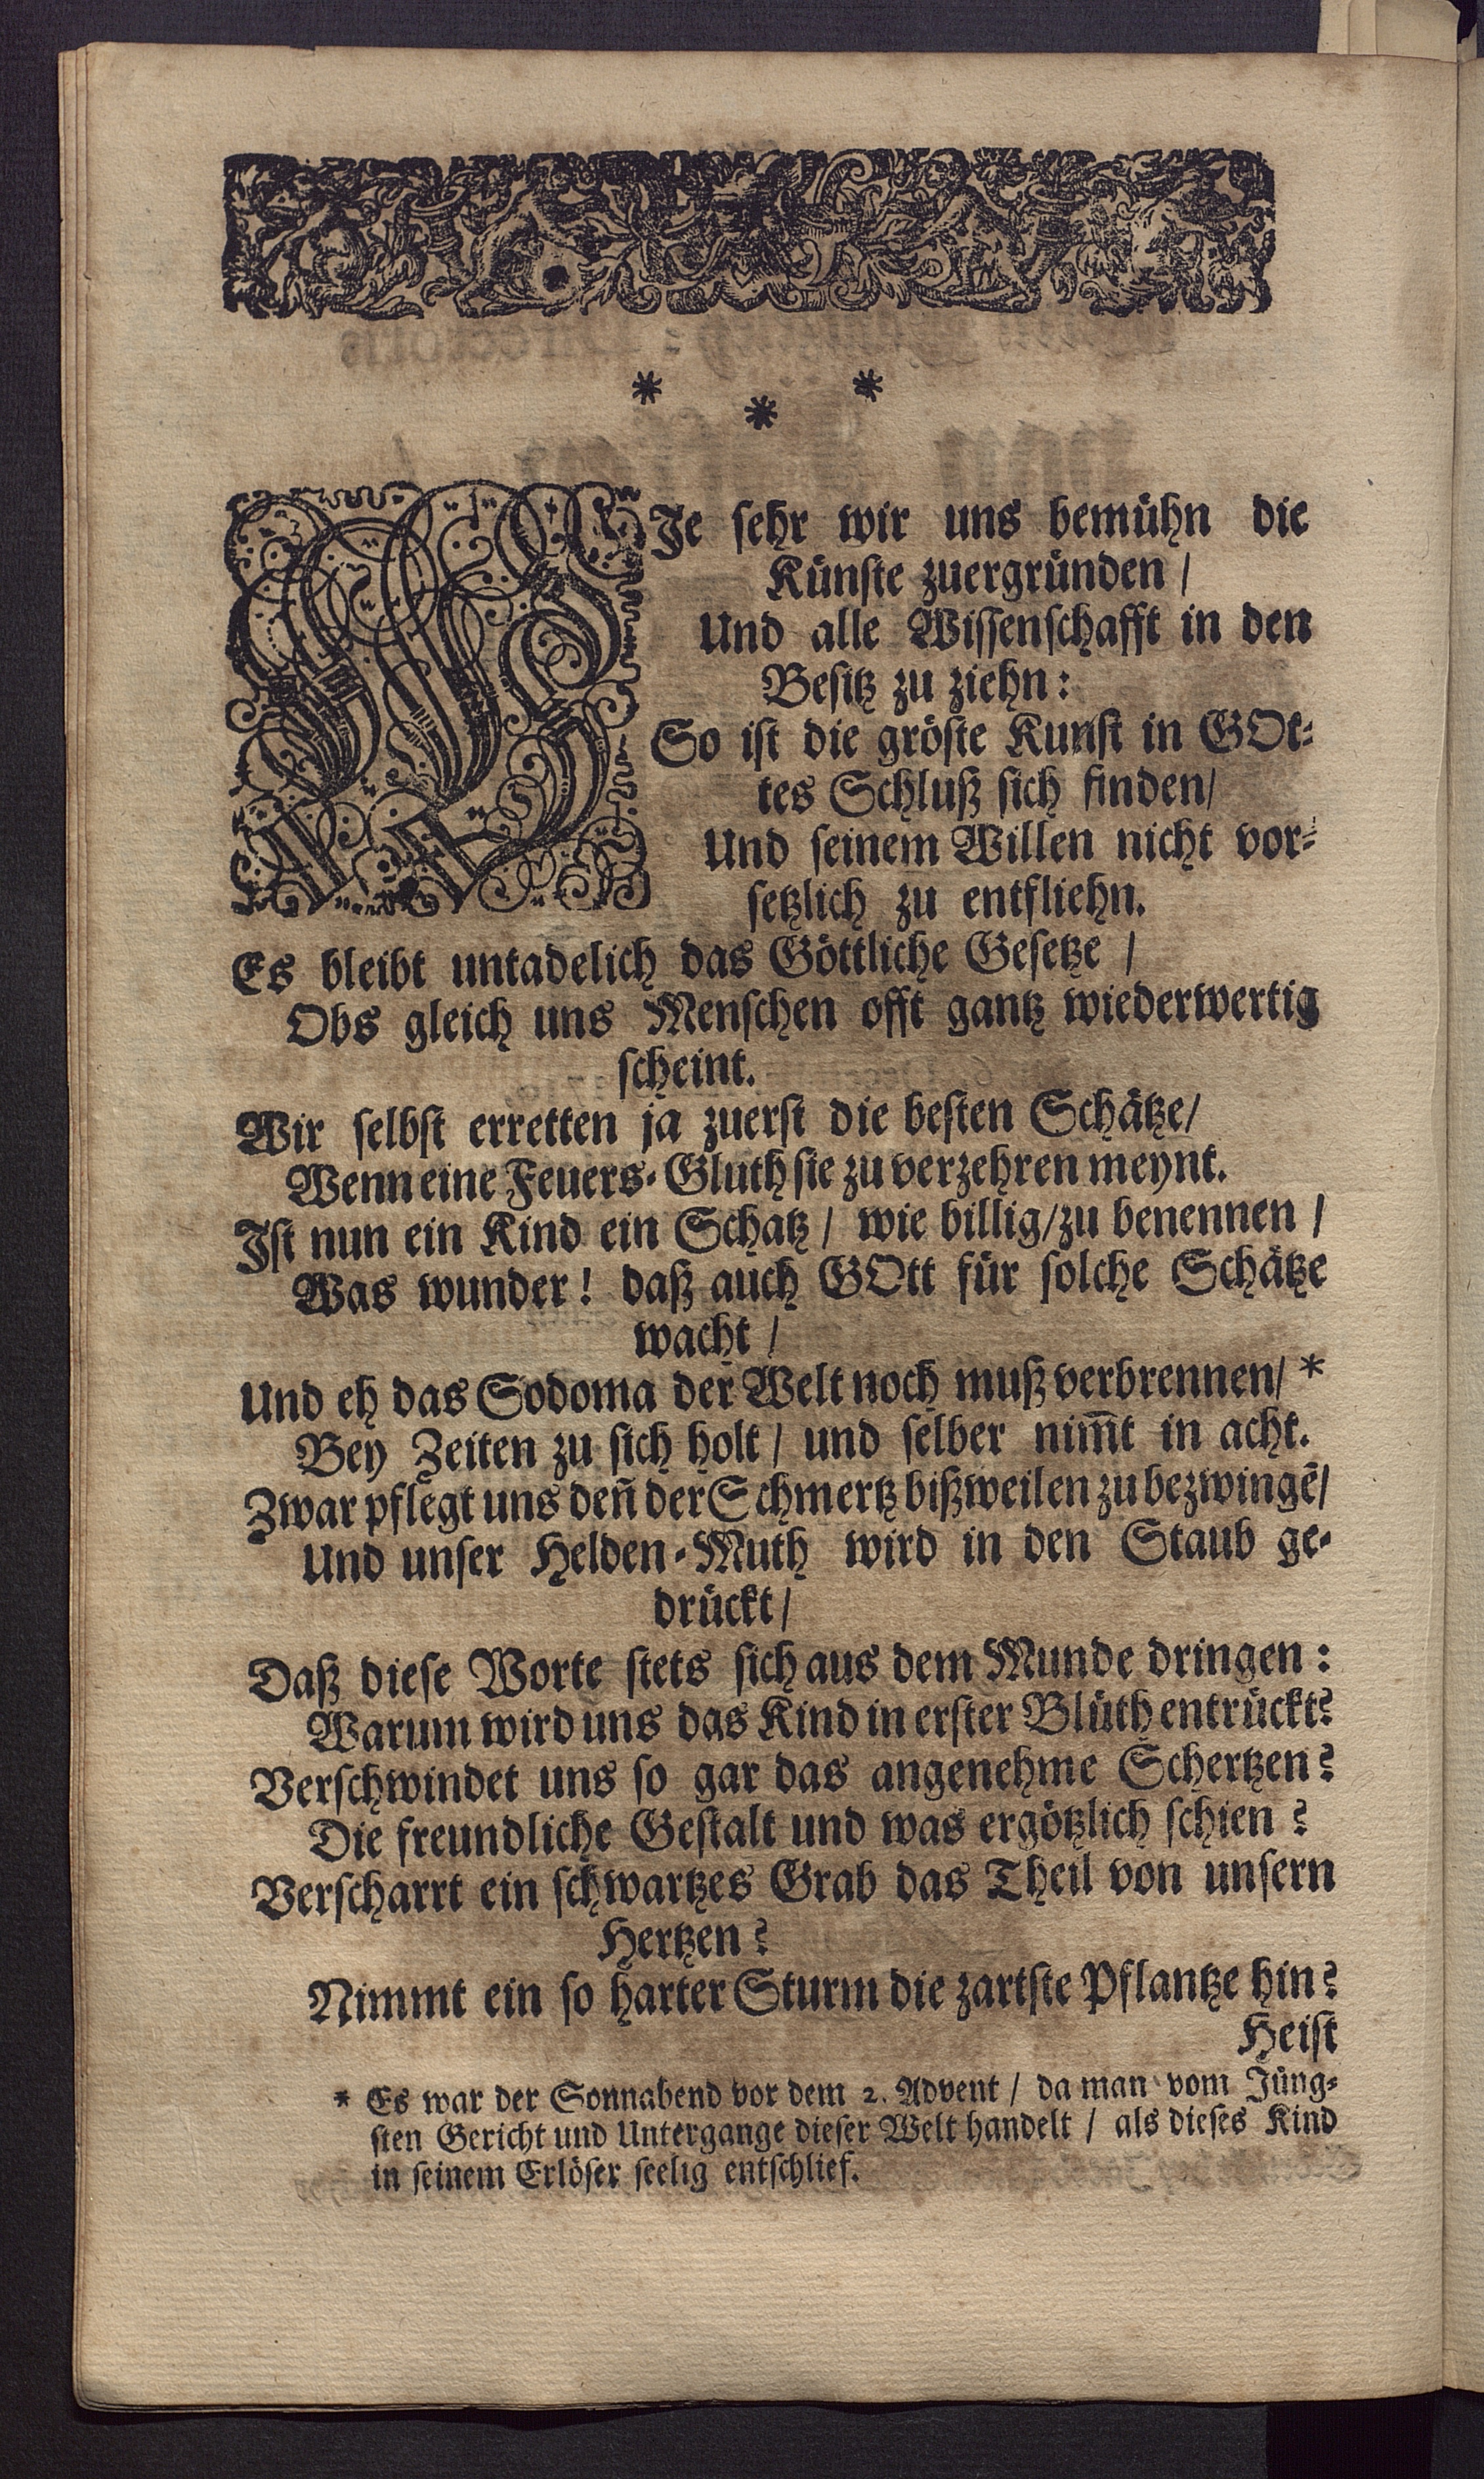 * * *
WJe sehr wir uns bemühn die
Künste zuergründen /
Und alle Wissenschafft in den
Besitz zu ziehn:
So ist die gröste Kunst in GOt-
tes Schluß sich finden/
Und seinem Willen nicht vor-
setzlich zu entfliehn.
Es bleibt untadelich das Göttliche Gesetze /
Obs gleich uns Menschen offt gantz wiederwertig
scheint.
Wir selbst erretten ja zuerst die besten Schätze/
Wenn eine Feuers-Gluth sie zu verzehren meynt.
Jst nun ein Kind ein Schatz / wie billig/zu benennen /
Was wunder! daß auch GOtt für solche Schätze
wacht /
Und eh das Sodoma der Welt noch muß verbrennen/ *
Bey Zeiten zu sich holt / und selber nim̅t in acht.
Zwar pflegt uns den̅ der Schmertz bißweilen zu bezwingē/
Und unser Helden-Muth wird in den Staub ge-
drückt /
Daß diese Worte stets sich aus dem Munde dringen:
Warum wird uns das Kind in erster Blüth entrückt?
Verschwindet uns so gar das angenehme Schertzen?
Die freundliche Gestalt und was ergötzlich schien?
Verscharrt ein schwartzes Grab das Theil von unsern
Hertzen?
Nimmt ein so harter Sturm die zartste Pflantze hin?
Heist
* Es war der Sonnabend vor dem 2. Advent / da man vom Jüng-
sten Gericht und Untergange dieser Welt handelt / als dieses Kind
in seinem Erlöser seelig entschlief.